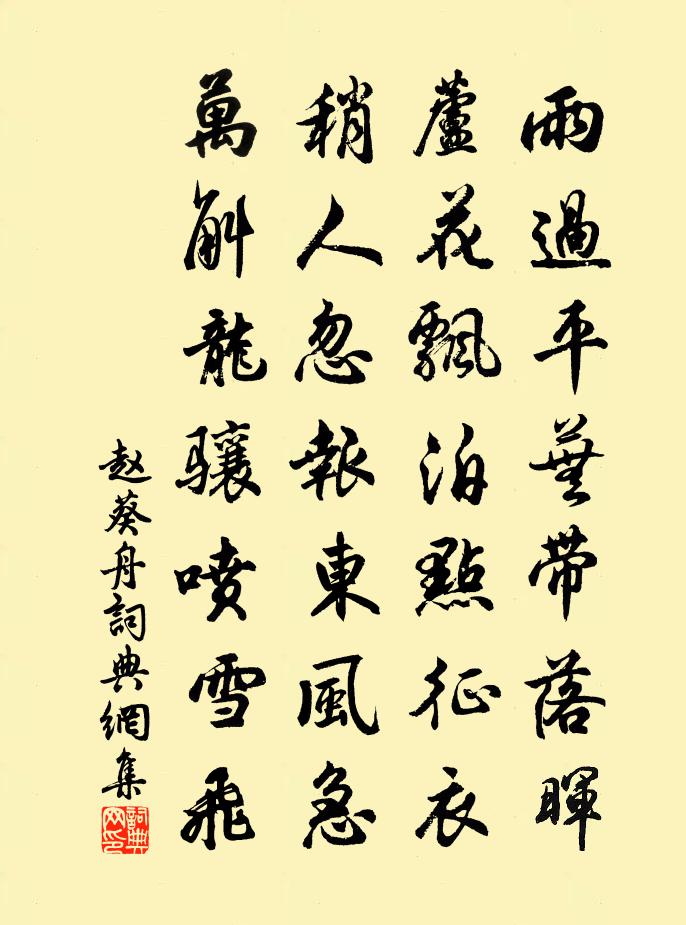 雨過平蕪帶落暉
蘆花飄泊點征衣
稍人忽報東風急
萬斛龍骧喷雪飛
赵葵舟詞典網集
詞典网印